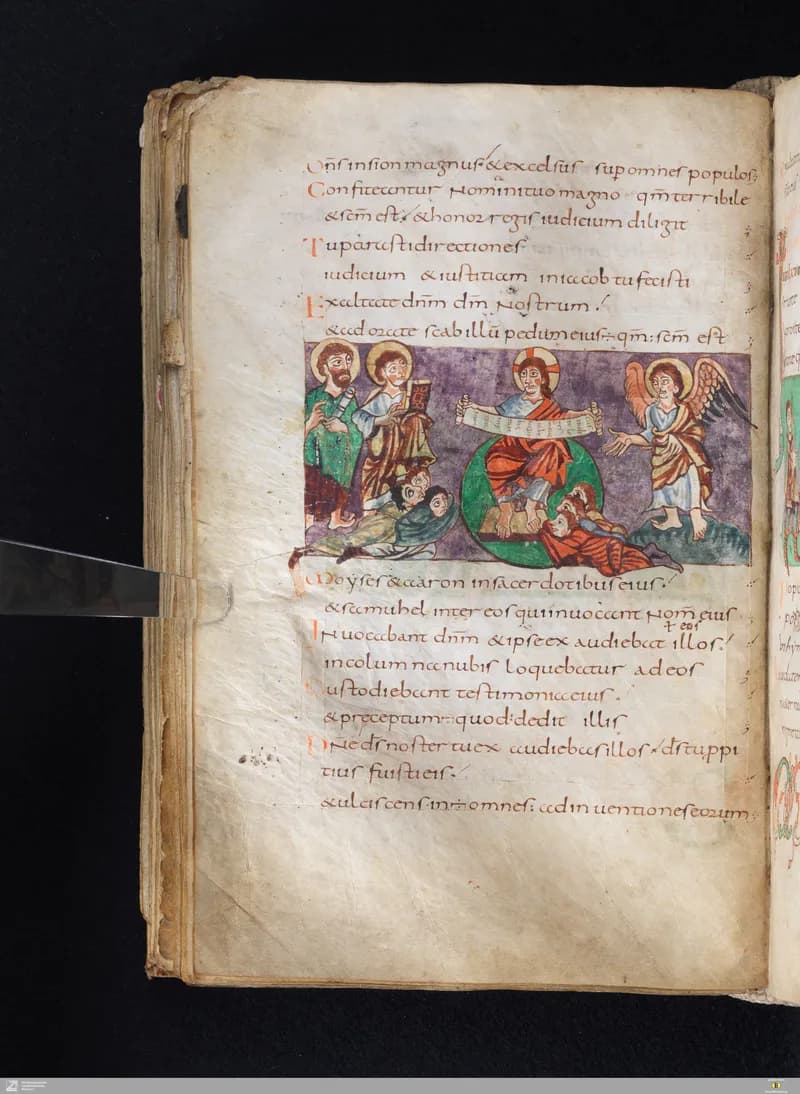 Dn̄s in sion magnus & excelsus sup omnes populos
Confiteantur nomini tuo magno qm̄ terribile
& sc̄m est & honor regis iudicium diligit
Tu parasti directiones
iudicium & iustitiam in iacob tu fecisti
Exaltate dnm̄ dm̄ nostrum
& adorate scabillū pedum eius qm̄ sc̄m est
Moyses & aaron in sacerdotibus eius
& samuhel inter eos qui inuocant nom̄ eius
Inuocabant dnm̄ & ipse exaudiebat illos
+ eos
in columna nubis loquebatur ad eos
Custodiebant testimonia eius
& preceptum quod dedit illis
Dn̄e ds̄ noster tu exaudiebas illos ds̄ tu ppi
tius fuisti eis
& ulciscens in omnes adinuentiones eorum